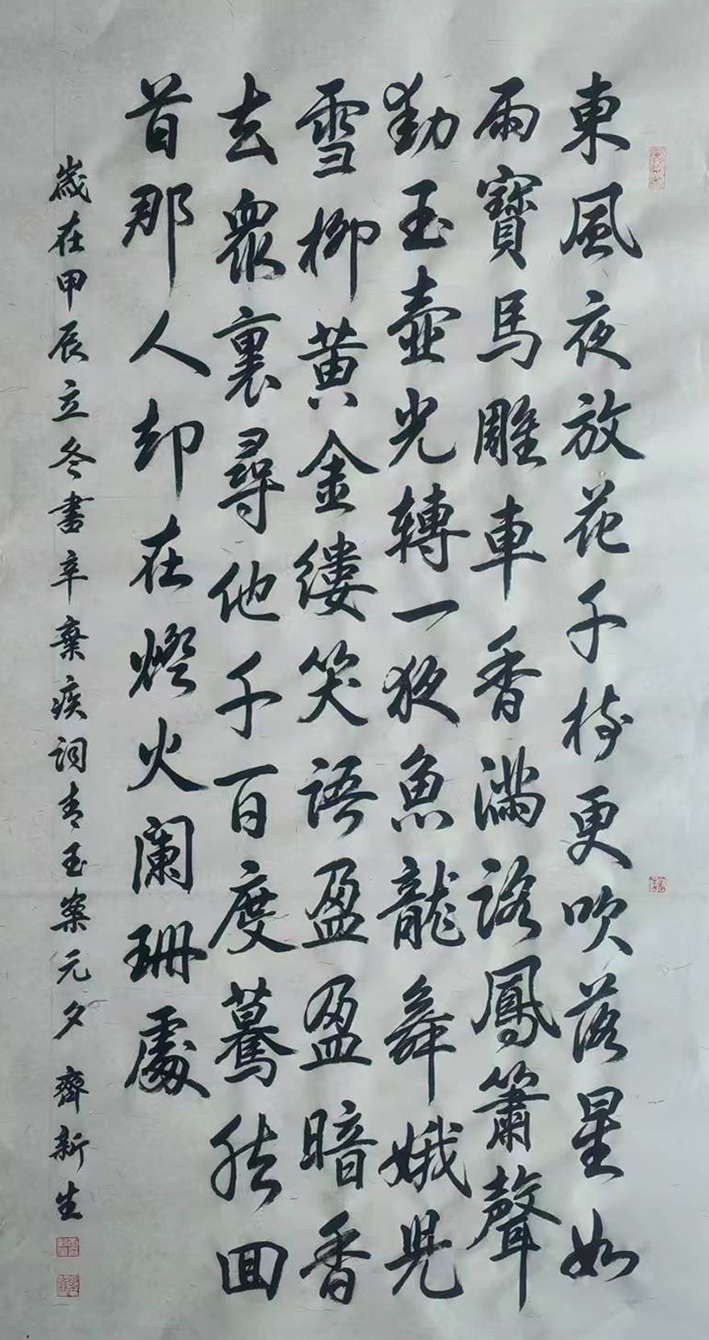 東風夜放花千樹更吹落星如
雨寶馬雕車香滿路鳳簫聲
動玉壺光轉一夜魚龍舞娥兒
雪柳黄金缕笑語盈盈暗香
去衆裏尋他千百度驀然回
首那人却在燈火阑珊處
歲在甲辰立冬書辛棄疾詞青玉案元夕 齊新生